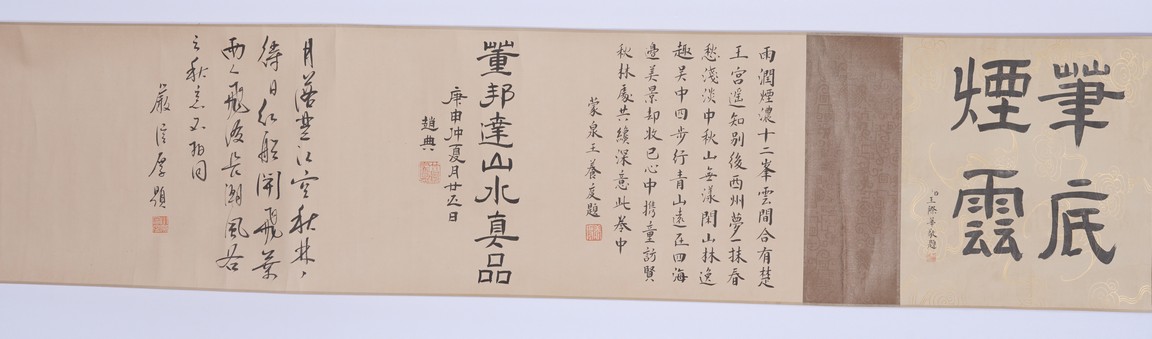 筆底
煙雲
王際華敬題
雨潤煙濃十二峯雲間合有楚
王宮遙知別後西州夢一抹春
愁淺淡中秋山無漾閑山林逸
趣吴中四步行青山遠在四海
邊美景却收已心中携童訪賢
秋林處共續深意此卷中
蒙泉王養度題
董邦達山水真品
庚申仲夏月廿五日
趙典
月落楚江空秋林
待日红船開飛葉
飛渡長湖風
之秋意不相同
嚴信厚題